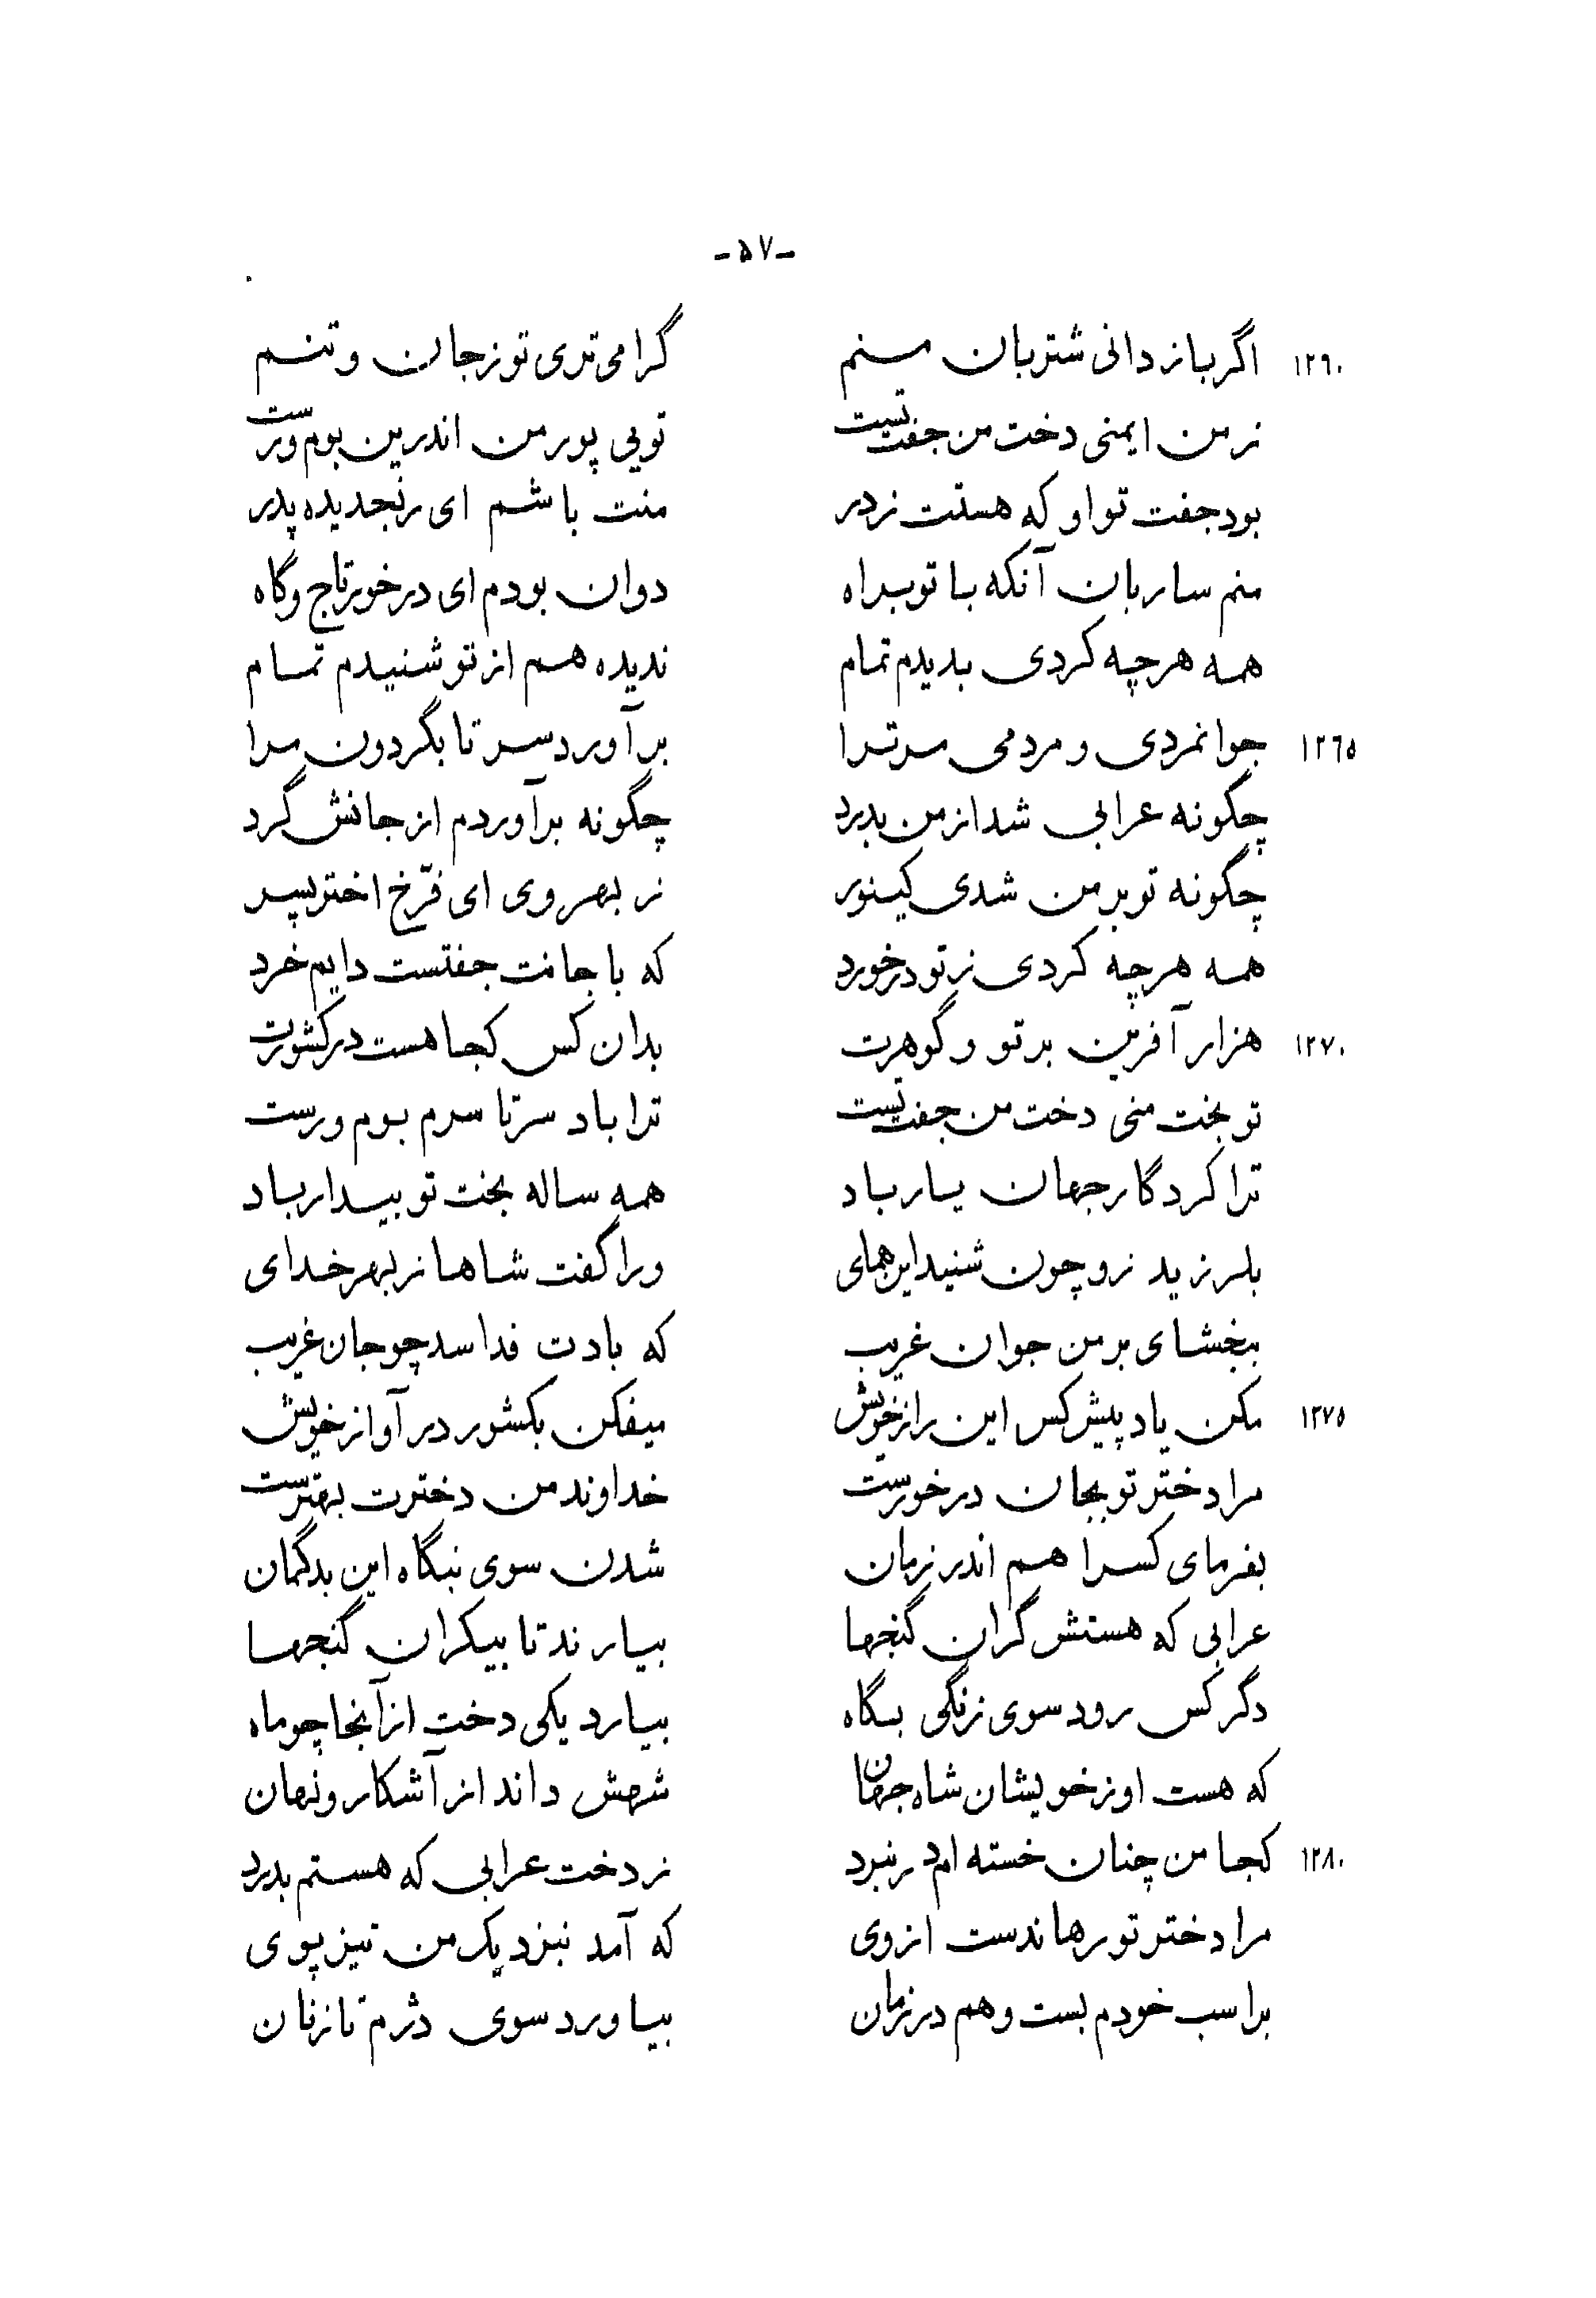 -۵۷-
۱۲۶۰ اگر باز دانی شتربان منم گرامی‌تری تو ز جان و تنم
ز من ایمنی دخت من جفت تست تویی پور من اندرین بوم و رست
بود جفت تو او که هستت ز در منت باشم ای رنجدیده پدر
منم ساربان آنکه با تو براه دوان بودم ای درخور تاج و گاه
همه هرچه کردی بدیدم تمام ندیده هم از تو شنیدم تمام
۱۲۶۵ جوانمردی و مردمی مر ترا برآورد سر تا بگردون مرا
چگونه عرابی شد از من بدرد چگونه برآوردم از جانش گرد
چگونه تو بر من شدی کینه‌ور ز بهر وی ای فرّخ اختر پسر
همه هرچه کردی ز تو درخورد که با جانت جفتست دایم خرد
۱۲۷۰ هزار آفرین بر تو و گوهرت بدان کس کجا هست در کشورت
تو بخت منی دخت من جفت تست ترا باد سرتا سرم بوم و رست
ترا کردگار جهان یار باد همه ساله بخت تو بیدار باد
بلرزید زو چون شنید این همای ورا گفت شاها ز بهر خدای
ببخشای بر من جوان غریب که بادت فدا سد چو جان غریب
۱۲۷۵ مکن یاد پیش کس این راز خویش میفکن بکشور در آواز خویش
مرا دختر تو بجان درخورست خداوند من دخترت بهترست
بفرمای کس را هم اندر زمان شدن سوی بنگاه این بدگمان
عرابی که هستش گران گنجها بیارند تا بیکران گنجها
دگر کس رود سوی زنگی بگاه بیارد یکی دخت از آنجا چو ماه
که هست او ز خویشان شاه جهان شهش داند از آشکار و نهان
۱۲۸۰ کجا من چنان خسته‌ام در نبرد ز دخت عرابی که هستم بدرد
مرا دختر تو رهاندست از وی که آمد بنزدیک من تیز پوی
بر اسب خودم بست و هم در زمان بیاورد سوی دژم تازنان